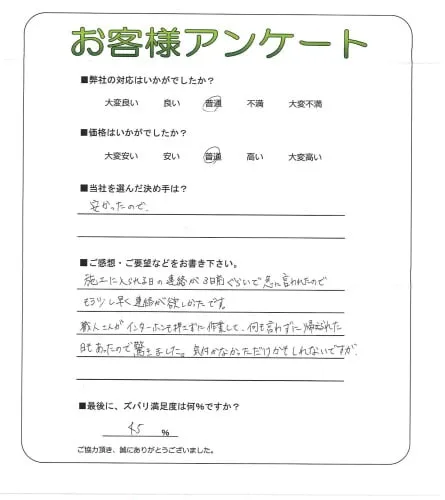 お客様アンケート
■弊社の対応はいかがでしたか?
大変良い 良い 普通 不満 大変不満
■価格はいかがでしたか?
大変安い 安い 普通 高い 大変高い
■当社を選んだ決め手は?
安かったので、
■ご感想・ご要望などをお書き下さい。
施工に入られる日の連絡が3日前ぐらいで急に言われたので
もう少し早く連絡が欲しかったです。
職人さんがインターホンも押さずに作業して、何も言わずに帰られた
日もあったので驚きました。気付かなかっただけかもしれないですが、
■最後に、ズバリ満足度は何%ですか?
45 %
ご協力頂き、誠にありがとうございました。